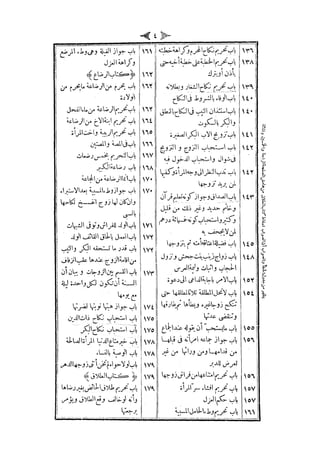 ﴿ ٤ ﴾
١٣٦ باب تحريم نكاح المحرم وكراهة خطبته
١٣٨ باب تحريم الخطبة على خطبة أخيه حتى
يأذن أو يترك
١٣٩ باب تحريم نكاح الشغار وبطلانه
١٤٠ باب الوفاء بالشروط في النكاح
١٤٠ باب استئذان الثيب في النكاح بالنطق
والبكر بالسكوت
١٤١ باب تزويج الأب البكر الصغيرة
١٤٢ باب استحباب التزوج والتزويج
في شوال واستحباب الدخول فيه
١٤٢ باب ندب النظر إلى وجه المرأة وكفيها
لمن يريد تزوجها
١٤٣ باب الصداق وجواز كونه تعليم قرآن
وخاتم حديد وغير ذلك من قليل
وكثير واستحباب كونه خمسمائة درهم
لمن لا يجحف به
١٤٥ باب فضيلة إعتاقه أمته ثم يتزوجها
١٤٨ باب زواج زينب بنت جحش ونزول
الحجاب وإثبات وليمة العرس
١٥٢ باب الأمر بإجابة الداعي إلى دعوة
١٥٤ باب لا تحل المطلقة ثلاثا لمطلقها حتى
تنكح زوجا غيره ويطأها ثم يفارقها
وتنقضي عدتها
١٥٥ باب ما يستحب أن يقوله عند الجماع
١٥٦ باب جواز جماعه امرأته في قبلها
من قدامها ومن ورائها من غير
تعرض للدبر
١٥٦ باب تحريم امتناعها من فراش زوجها
١٥٧ باب تحريم إفشاء سر المرأة
١٥٧ باب حكم العزل
١٦١ باب تحريم وطء الحامل المسبية
١٦١ باب جواز الغيلة وهي وطء المرضع
وكراهة العزل
١٦٢ ﴿ كتاب الرضاع ﴾
١٦٢ باب يحرم من الرضاعة ما يحرم من
الولادة
١٦٣ باب تحريم الرضاعة من ماء الفحل
١٦٤ باب تحريم ابنة الأخ من الرضاعة
١٦٥ باب تحريم الربيبة وأخت المرأة
١٦٦ باب في المصة والمصتين
١٦٧ باب التحريم بخمس رضعات
١٦٨ باب رضاعة الكبير
١٧٠ باب إنما الرضاعة من المجاعة
١٧٠ باب جواز وطء المسبية بعد الاستبراء
وإن كان لها زوج انفسخ نكاحها
بالسبي
١٧١ باب الولد للفراش وتوقي الشبهات
١٧٢ باب العمل بإلحاق القائف الولد
١٧٢ باب قدر ما تستحقه البكر والثيب
من إقامة الزوج عندها عقب الزفاف
١٧٣ باب القسم بين الزوجات وبيان أن
السنة أن تكون لكل واحدة ليلة
مع يومها
١٧٤ باب جواز هبتها نوبتها لضرتها
١٧٥ باب استحباب نكاح ذات الدين
١٧٥ باب استحباب نكاح البكر
١٧٨ باب خير متاع الدنيا المرأة الصالحة
١٧٨ باب الوصية بالنساء
١٧٩ باب لولا حواء لم تخن أنثى زوجها الدهر
١٧٩ ﴿ كتاب الطلاق ﴾
١٧٩ باب تحريم طلاق الحائض بغير رضاها
وأنه لو خالف وقع الطلاق ويؤمر
برجعتها